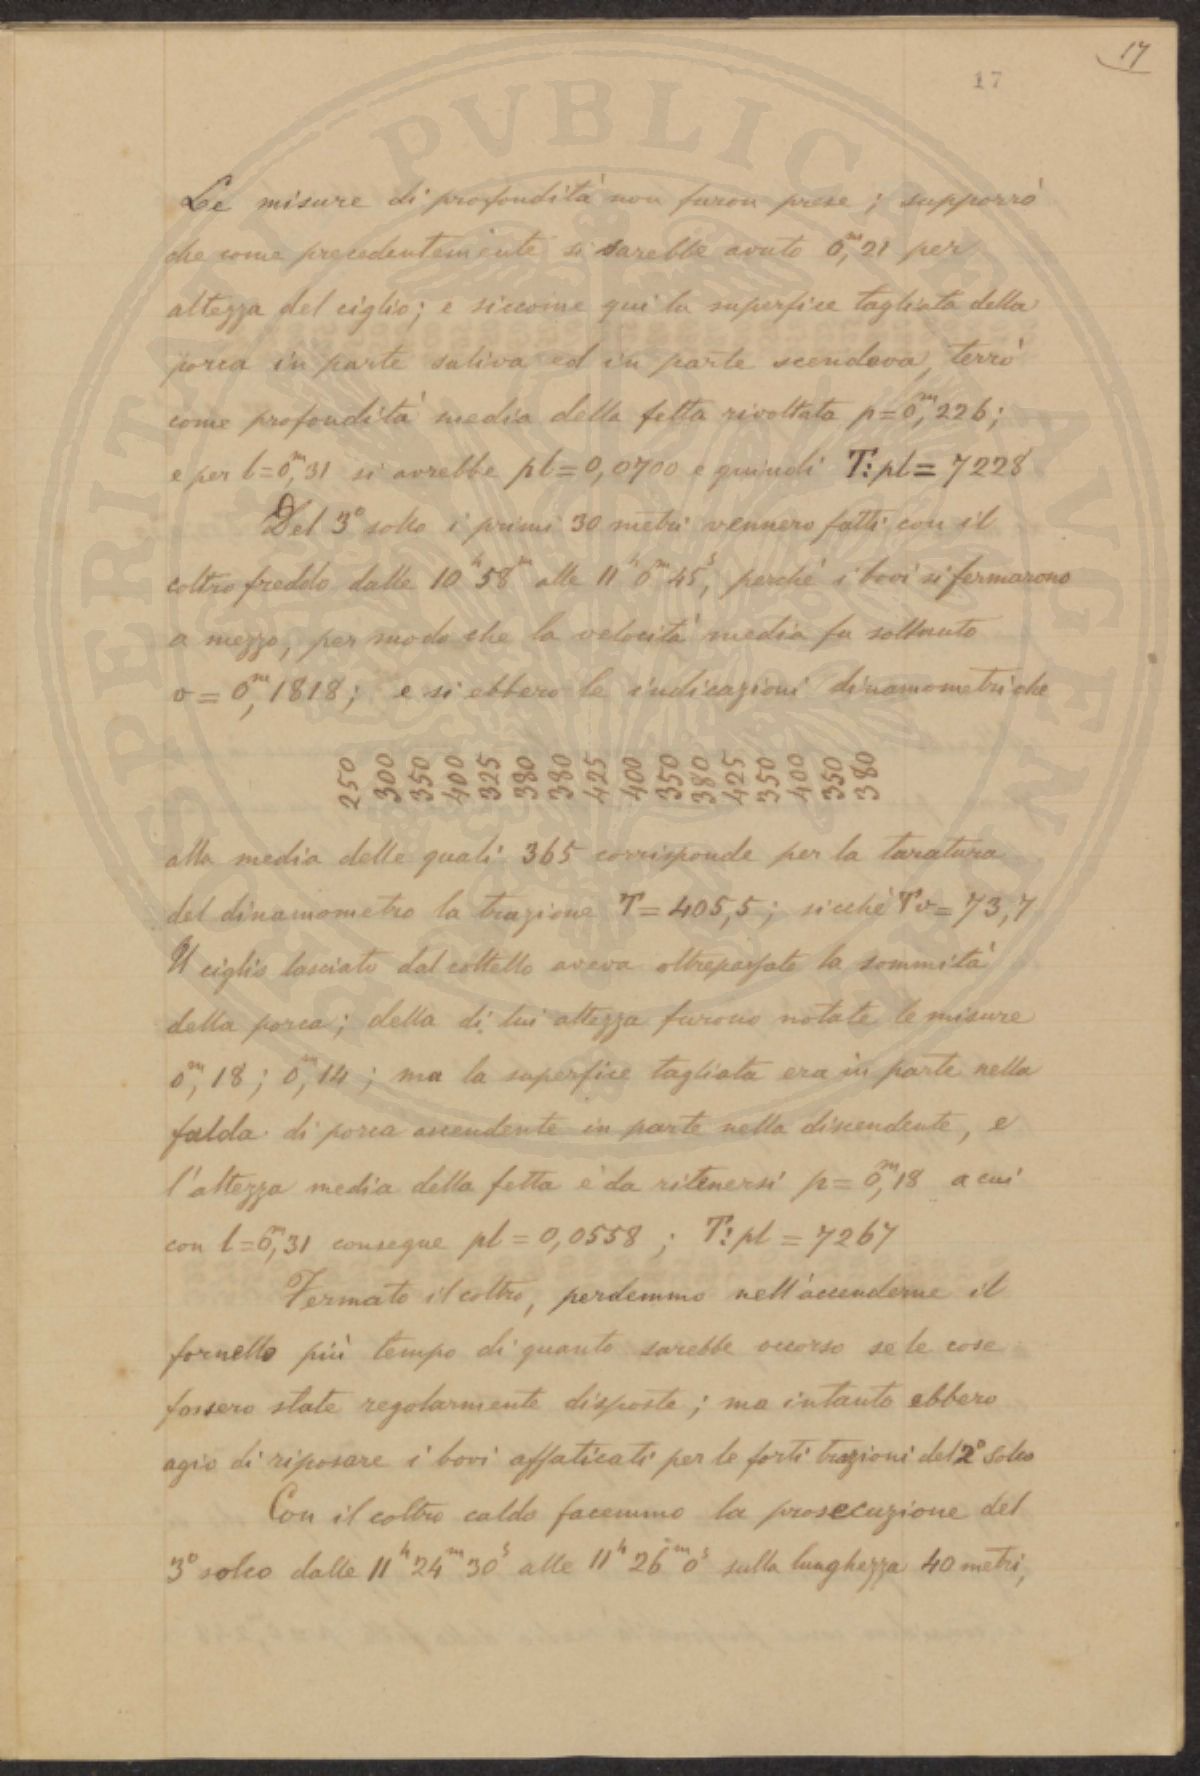 17
17
Le misure di profondità non furon prese; supporrò
che come precedentemente si sarebbe avuto 0,ᵐ21 per
altezza del ciglio; e siccome qui la superfice tagliata della
porca in parte saliva ed in parte scendeva, terrò
come profondità media della fetta rivoltata p=0,ᵐ226;
e per l=0,ᵐ31 si avrebbe pl=0,0700 e quindi T:pl=7228
Del 3° solco i primi 30 metri vennero fatti con il
coltro freddo dalle 10ʰ58ᵐ alle 11ʰ0ᵐ45ˢ, perché i bovi si fermarono
a mezzo, per modo che la velocità media fu soltanto
v=0,ᵐ1818; e si ebbero le indicazioni dinamometriche
250 300 350 400 325 380 380 425 400 350 380 425 350 400 350 380
alla media delle quali 365 corrisponde per la taratura
del dinamometro la trazione T=405,5; sicché Tv=73,7
Il ciglio lasciato dal coltello aveva oltrepassato la sommità
della porca; della di lui altezza furono notate le misure
0,ᵐ18; 0,ᵐ14; ma la superfice tagliata era in parte nella
falda di porca ascendente in parte nella discendente, e
l'altezza media della fetta è da ritenersi p=0,ᵐ18 a cui
con l=0,ᵐ31 consegue pl=0,0558; T:pl=7267
Fermato il coltro, perdemmo nell'accenderne il
fornello più tempo di quanto sarebbe occorso se le cose
fossero state regolarmente disposte; ma intanto ebbero
agio di riposare i bovi affaticati per le forti trazioni del 2° solco
Con il coltro caldo facemmo la prosecuzione del
3° solco dalle 11ʰ24ᵐ30ˢ alle 11ʰ26ᵐ0ˢ sulla lunghezza 40 metri,